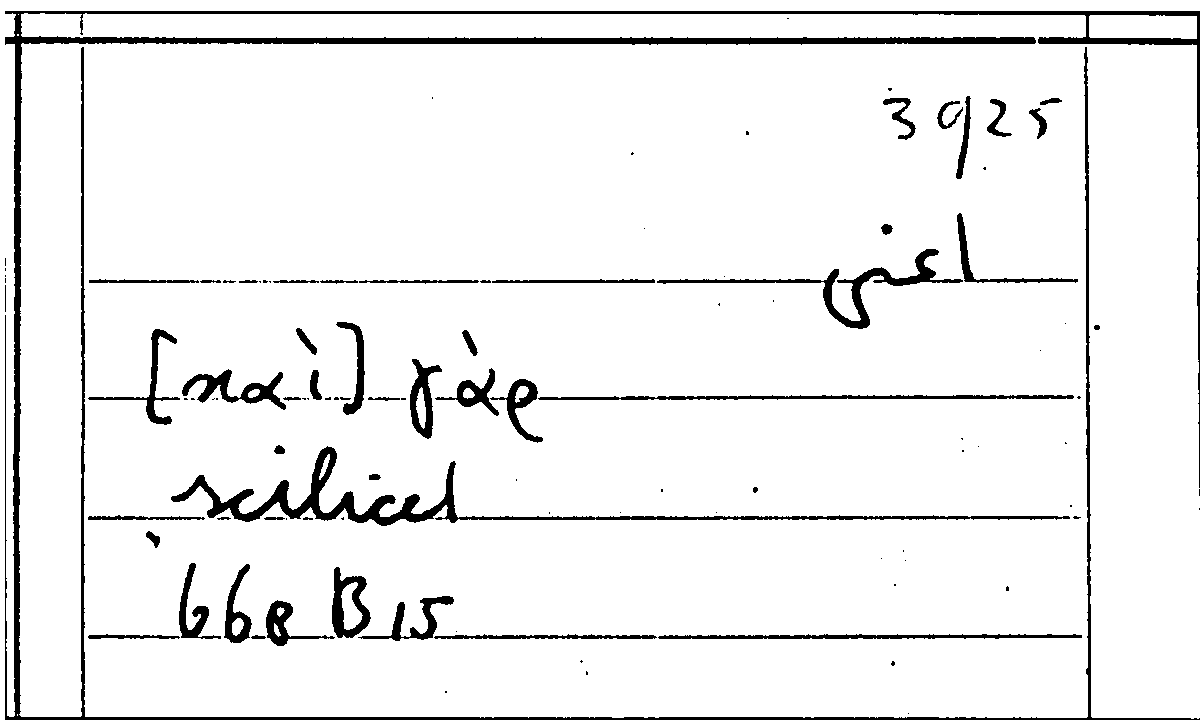 3925
[καὶ] γὰρ
scilicet
668 B 15